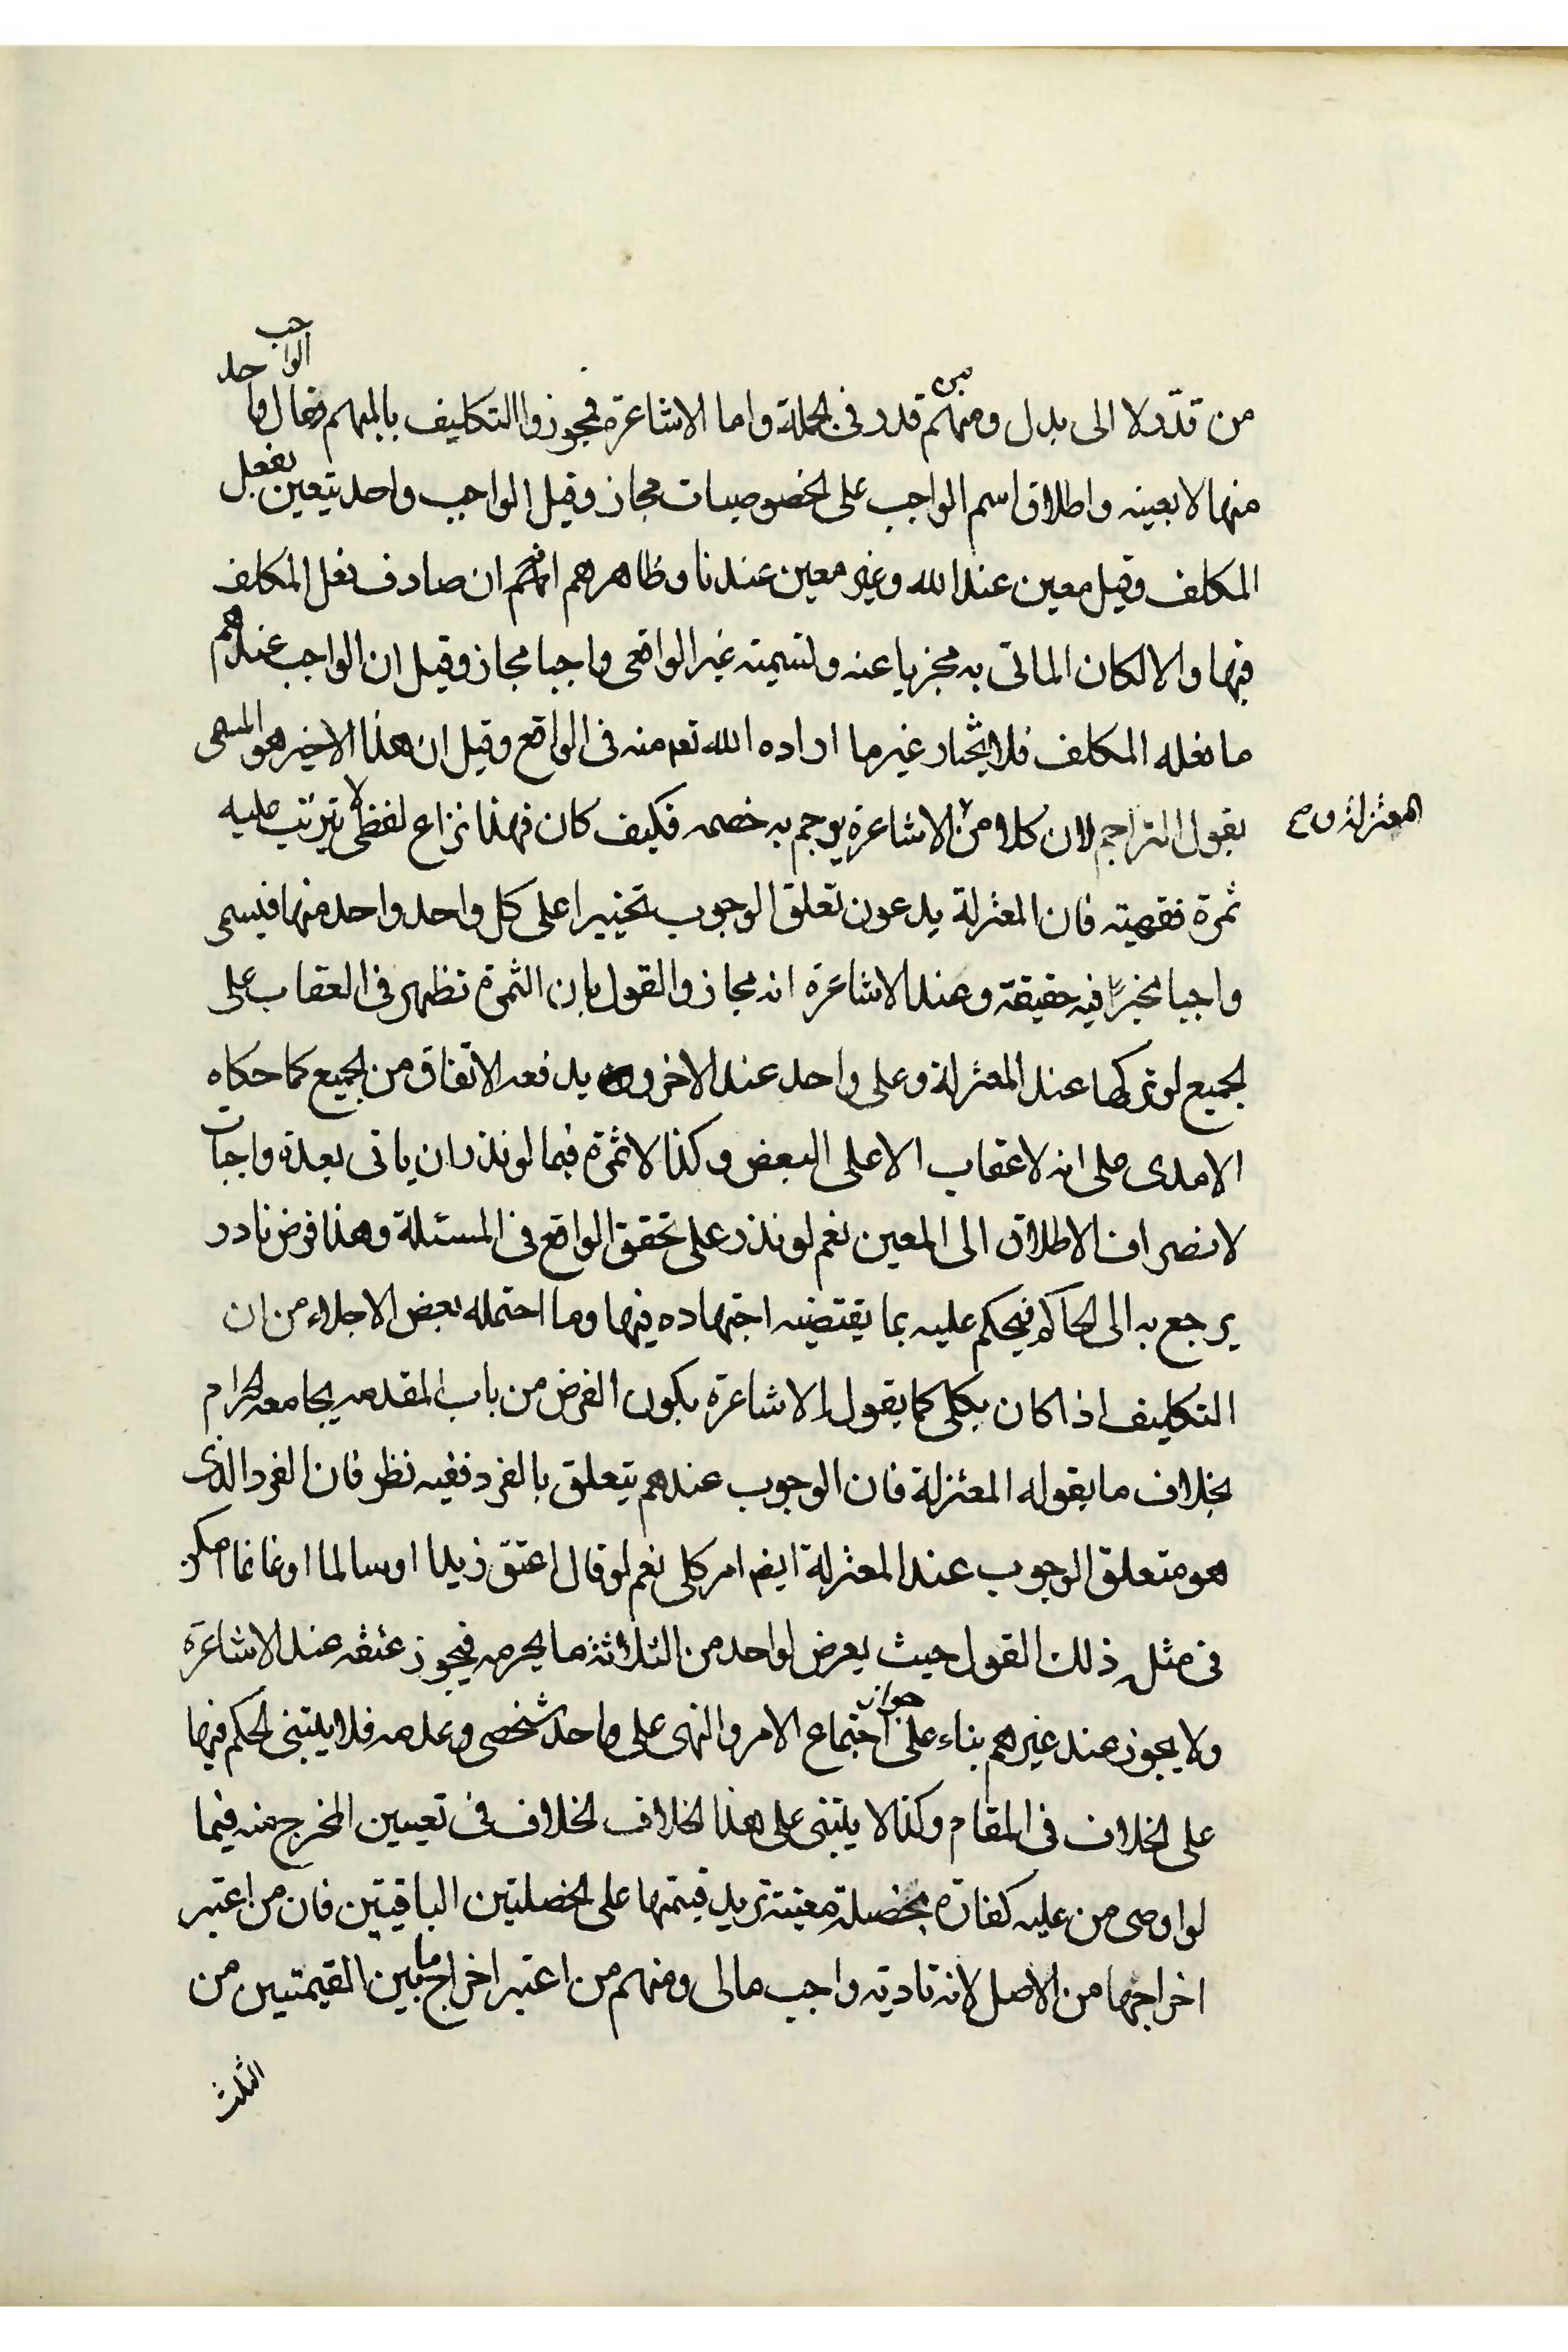 من قدّر لا الى بدل ومنهم من قدر فى الجملة واما الاشاعرة فجوزوا التكليف بالمبهم فقال الواجب واحد
منها لا بعينه واطلاق اسم الواجب على الخصوصيات مجاز وقيل الواجب واحد يتعين بفعل
المكلف وقيل معين عند الله وغير معين عندنا وظاهرهم انهم ان صادف فعل المكلف
فيها والا لكان الماتى به مجزيا عنه ولتسميته غير الواقعى واجبا مجاز وقيل ان الواجب عندهم
ما يفعله المكلف فلا يختار غير ما اراده الله تعم منه فى الواقع وقيل ان هذا الاخير هو المسمى
بقول التراجم لان كلا من الاشاعرة والمعتزلة يرجم به خصمه فكيف كان فهذا نزاع لفظى لا يترتب عليه
ثمرة فقهيته فان المعتزلة يدعون تعلق الوجوب تخييرا على كل واحد واحد منها فيسمى
واجبا مخيرا فيه حقيقة وعند الاشاعرة انه مجاز والقول بان الثمرة تظهر فى العقاب على
الجميع لو تركها عند المعتزلة وعلى واحد عند الاخرون يدفعه الاتفاق من الجميع كما حكاه
الامدى على انه لا عقاب الا على البعض وكذا لا ثمرة فيما لو نذر ان ياتى بعدة واجبات
لانصراف الاطلاق الى المعين نعم لو نذر على تحقق الواقع فى المسئلة وهذا فرض نادر
يرجع به الى الحاكم فيحكم عليه بما يقتضيه اجتهاده فيها وما احتمله بعض الاجلاء من ان
التكليف اذا كان بكلى كما يقول الاشاعرة يكون الفرض من باب المقدمه يجامعه الحرام
بخلاف ما يقوله المعتزلة فان الوجوب عندهم يتعلق بالفرد ففيه نظر فان الفرد الذى
هو متعلق الوجوب عند المعتزلة ايضم امر كلى نعم لو قال اعتق زيدا او سالما او غانما امكن
فى مثله ذلك القول حيث يعرض لواحد من الثلاثة ما يحرمه فيجوز عتقه عند الاشاعرة
ولا يجوز عند غيرهم بناء على جواز اجتماع الامر والنهى على واحد شخصى وعدمه فلا يبتنى الحكم فيها
على الخلاف فى المقام وكذا لا يبتنى على هذا الخلاف الخلاف فى تعيين المخرج منه فيما
لو اوصى من عليه كفارة بخصلة معينة تزيد قيمتها على الخصلتين الباقيتين فان من اعتبر
اخراجها من الاصل لانه تادية واجب مالى ومنهم من اعتبر اخراج ما بين القيمتين من
الثلث